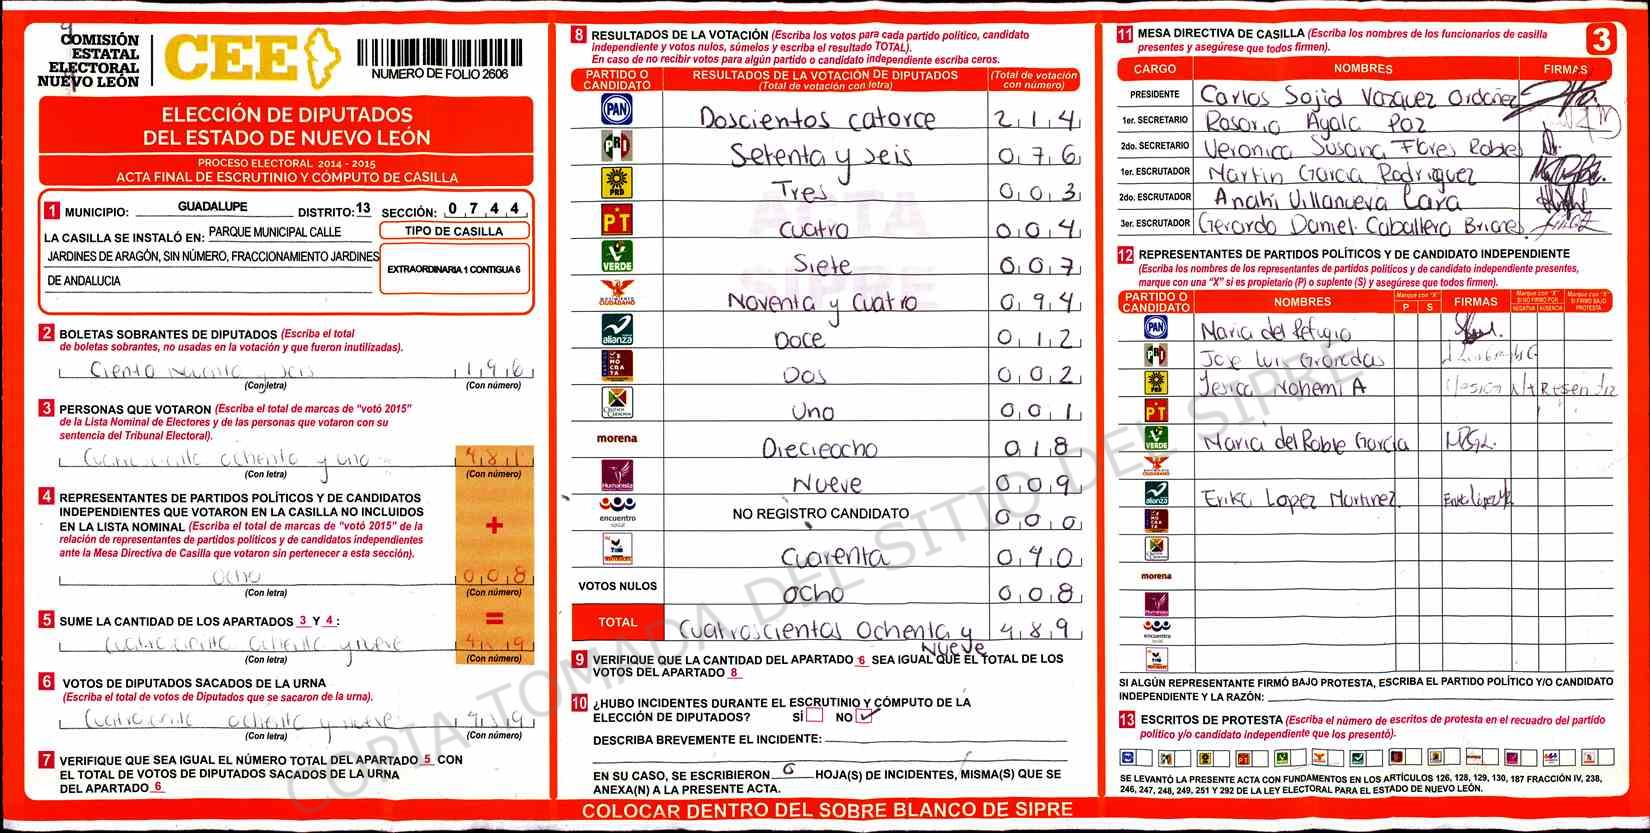 COMISIÓN
ESTATAL
ELECTORAL
NUEVO LEÓN
CEE
NUMERO DE FOLIO 2606
ELECCIÓN DE DIPUTADOS
DEL ESTADO DE NUEVO LEÓN
PROCESO ELECTORAL 2014 - 2015
ACTA FINAL DE ESCRUTINIO Y CÓMPUTO DE CASILLA
1 MUNICIPIO: GUADALUPE DISTRITO: 13 SECCIÓN: 0 7 4 4
LA CASILLA SE INSTALÓ EN: PARQUE MUNICIPAL CALLE
JARDINES DE ARAGÓN, SIN NÚMERO, FRACCIONAMIENTO JARDINES
DE ANDALUCIA
TIPO DE CASILLA
EXTRAORDINARIA 1 CONTIGUA 6
2 BOLETAS SOBRANTES DE DIPUTADOS (Escriba el total
de boletas sobrantes, no usadas en la votación y que fueron inutilizadas).
Ciento Noventa y seis 1 9 6
(Con letra) (Con número)
3 PERSONAS QUE VOTARON (Escriba el total de marcas de "votó 2015"
de la Lista Nominal de Electores y de las personas que votaron con su
sentencia del Tribunal Electoral).
ochenta y uno 4 8 1
(Con letra) (Con número)
4 REPRESENTANTES DE PARTIDOS POLÍTICOS Y DE CANDIDATOS
INDEPENDIENTES QUE VOTARON EN LA CASILLA NO INCLUIDOS
EN LA LISTA NOMINAL (Escriba el total de marcas de "votó 2015" de la
relación de representantes de partidos políticos y de candidatos independientes
ante la Mesa Directiva de Casilla que votaron sin pertenecer a esta sección).
+
ocho 0 0 8
(Con letra) (Con número)
5 SUME LA CANTIDAD DE LOS APARTADOS 3 Y 4 :
=
ochenta y nueve 4 8 9
(Con letra) (Con número)
6 VOTOS DE DIPUTADOS SACADOS DE LA URNA
(Escriba el total de votos de Diputados que se sacaron de la urna).
ochenta y nueve 4 8 9
(Con letra) (Con número)
7 VERIFIQUE QUE SEA IGUAL EL NÚMERO TOTAL DEL APARTADO 5 CON
EL TOTAL DE VOTOS DE DIPUTADOS SACADOS DE LA URNA
DEL APARTADO 6
8 RESULTADOS DE LA VOTACIÓN (Escriba los votos para cada partido político, candidato
independiente y votos nulos, súmelos y escriba el resultado TOTAL).
En caso de no recibir votos para algún partido o candidato independiente escriba ceros.
PARTIDO O CANDIDATO RESULTADOS DE LA VOTACIÓN DE DIPUTADOS (Total de votación con letra) (Total de votación con número)
PAN Doscientos catorce 2 1 4
PRI Setenta y seis 0 7 6
PRD Tres 0 0 3
PT cuatro 0 0 4
VERDE Siete 0 0 7
MOVIMIENTO CIUDADANO Noventa y cuatro 0 9 4
alianza Doce 0 1 2
DEMOCRATA Dos 0 0 2
CRUZADA CIUDADANA Uno 0 0 1
morena Diecieocho 0 1 8
Humanista Nueve 0 0 9
encuentro social NO REGISTRO CANDIDATO 0 0 0
Cuarenta 0 4 0
VOTOS NULOS ocho 0 0 8
TOTAL Cuatroscientos Ochenta y 4 8 9
Nueve
ACTA
SIPRE
9 VERIFIQUE QUE LA CANTIDAD DEL APARTADO 6 SEA IGUAL QUE EL TOTAL DE LOS
VOTOS DEL APARTADO 8
10 ¿HUBO INCIDENTES DURANTE EL ESCRUTINIO Y CÓMPUTO DE LA
ELECCIÓN DE DIPUTADOS? SÍ NO
DESCRIBA BREVEMENTE EL INCIDENTE:
EN SU CASO, SE ESCRIBIERON 0 HOJA(S) DE INCIDENTES, MISMA(S) QUE SE
ANEXA(N) A LA PRESENTE ACTA.
COLOCAR DENTRO DEL SOBRE BLANCO DE SIPRE
11 MESA DIRECTIVA DE CASILLA (Escriba los nombres de los funcionarios de casilla
presentes y asegúrese que todos firmen).
3
CARGO NOMBRES FIRMAS
PRESIDENTE Carlos Sajid Vazquez Ordoñez
1er. SECRETARIO Rosario Ayala Paz
2do. SECRETARIO Veronica Susana Flores Robles
1er. ESCRUTADOR Martin Garcia Rodriguez
2do. ESCRUTADOR Anahi Villanueva Lara
3er. ESCRUTADOR Gerardo Daniel Caballero Briones
12 REPRESENTANTES DE PARTIDOS POLÍTICOS Y DE CANDIDATO INDEPENDIENTE
(Escriba los nombres de los representantes de partidos políticos y de candidato independiente presentes,
marque con una "X" si es propietario (P) o suplente (S) y asegúrese que todos firmen).
PARTIDO O CANDIDATO NOMBRES Marque con "X" P S FIRMAS Marque con "X" SI NO FIRMÓ POR NEGATIVA AUSENCIA Marque con "X" SI FIRMÓ BAJO PROTESTA
PAN Maria del Refugio
PRI Jose Luis Granadas
PRD Jesica Nohemi A
PT
VERDE Maria del Roble Garcia
MOVIMIENTO CIUDADANO
alianza Erika Lopez Martinez
DEMOCRATA
CRUZADA CIUDADANA
morena
Humanista
encuentro social
SI ALGÚN REPRESENTANTE FIRMÓ BAJO PROTESTA, ESCRIBA EL PARTIDO POLÍTICO Y/O CANDIDATO
INDEPENDIENTE Y LA RAZÓN:
13 ESCRITOS DE PROTESTA (Escriba el número de escritos de protesta en el recuadro del partido
político y/o candidato independiente que los presentó).
SE LEVANTÓ LA PRESENTE ACTA CON FUNDAMENTOS EN LOS ARTÍCULOS 126, 128, 129, 130, 187 FRACCIÓN IV, 238,
246, 247, 248, 249, 251 Y 292 DE LA LEY ELECTORAL PARA EL ESTADO DE NUEVO LEÓN.
COPIA TOMADA DEL SITIO DEL SIPRE